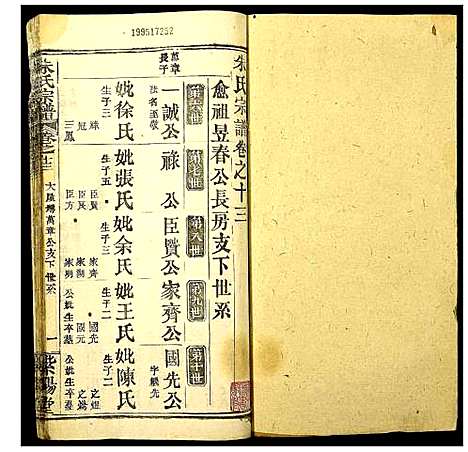 199517252
朱氏宗譜卷之十三
愈祖昱春公長房支下世系
第六世
第七世
第八世
第九世
第十世
萬章長子
一誠公
法名
祿公
臣賢公
家齊公
國先公
字
妣徐氏
妣張氏
妣余氏
妣王氏
妣陳氏
生子三
生子五
生子三
生子二
生子二
祿
冠
三鳳
臣賢
臣良
臣方
家齊
家
國先
國元
公妣生卒墓
公妣生卒
朱氏宗譜
卷之十三
萬章公支下世系
一
紫陽堂